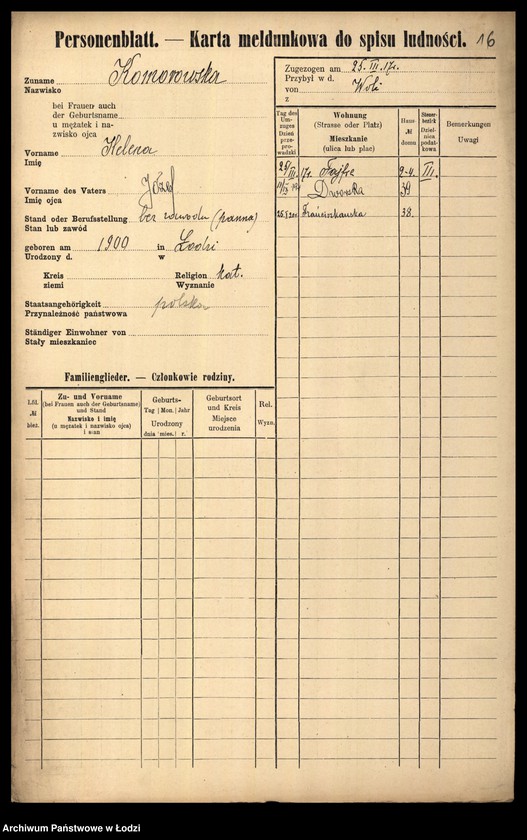 Personenblatt. — Karta meldunkowa do spisu ludności. 16
Zuname Komorowska
Nazwisko
bei Frauen auch
der Geburtsname
u mężatek i na-
zwisko ojca
Vorname Helena
Imię
Vorname des Vaters Józef
Imię ojca
Stand oder Berufsstellung bez zawodu (panna)
Stan lub zawód
geboren am 1900 in Łodzi
Urodzony d. w
Kreis Religion kat.
ziemi Wyznanie
Staatsangehörigkeit polska
Przynależność państwowa
Ständiger Einwohner von
Stały mieszkaniec
Familienglieder. — Członkowie rodziny.
Lfd. № bież.
Zu- und Vorname
(bei Frauen auch der Geburtsname)
und Stand
Nazwisko i imię
(u mężatek i nazwisko ojca)
i stan
Geburts-
Tag Mon. Jahr
Urodzony
dnia mies. r.
Geburtsort
und Kreis
Miejsce
urodzenia
Rel.
Wyzn.
Zugezogen am 25. III. 17 r.
Przybył w d.
von Woli
z
Tag des
Um-
zuges
Dzień
prze-
prowadzki
Wohnung
(Strasse oder Platz)
Mieszkanie
(ulica lub plac)
Haus
№
domu
Steuer-
bezirk
Dziel-
nica
podat-
kowa
Bemerkungen
Uwagi
25/III 17 r. Fajfra 2-4. III.
Dworska 39
Franciszkańska 38.
Archiwum Państwowe w Łodzi